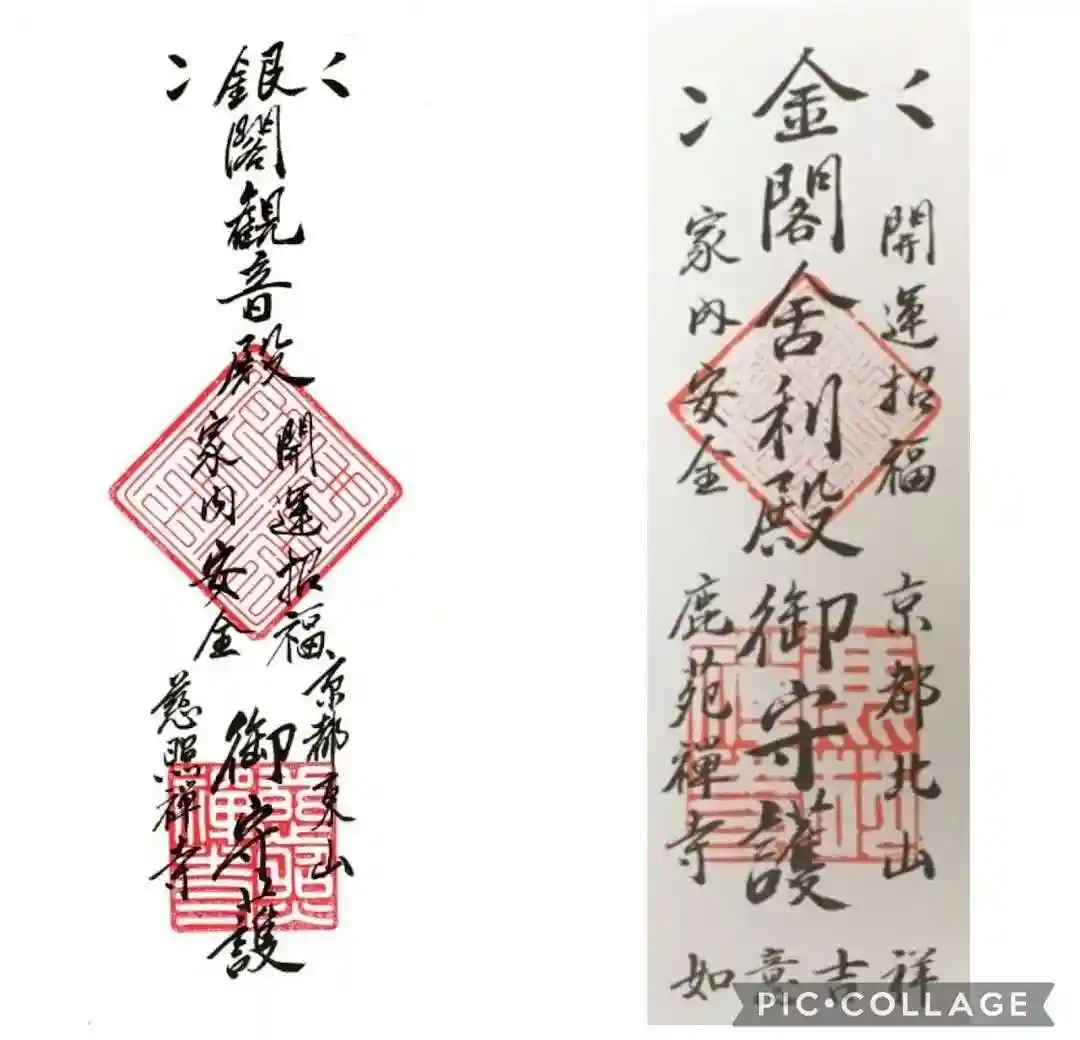 銀閣観音殿
開運招福
家内安全
京都東山
御守護
慈照禅寺
金閣舎利殿御守護
開運招福
家内安全
京都北山
鹿苑禅寺
如意吉祥
PIC•COLLAGE